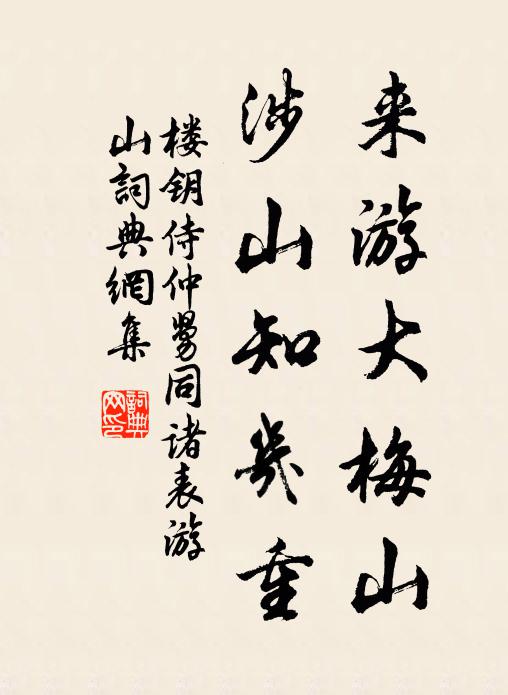 来游大梅山
涉山知幾重
楼钥侍仲舅同诸表游
山詞典網集
詞典
网印